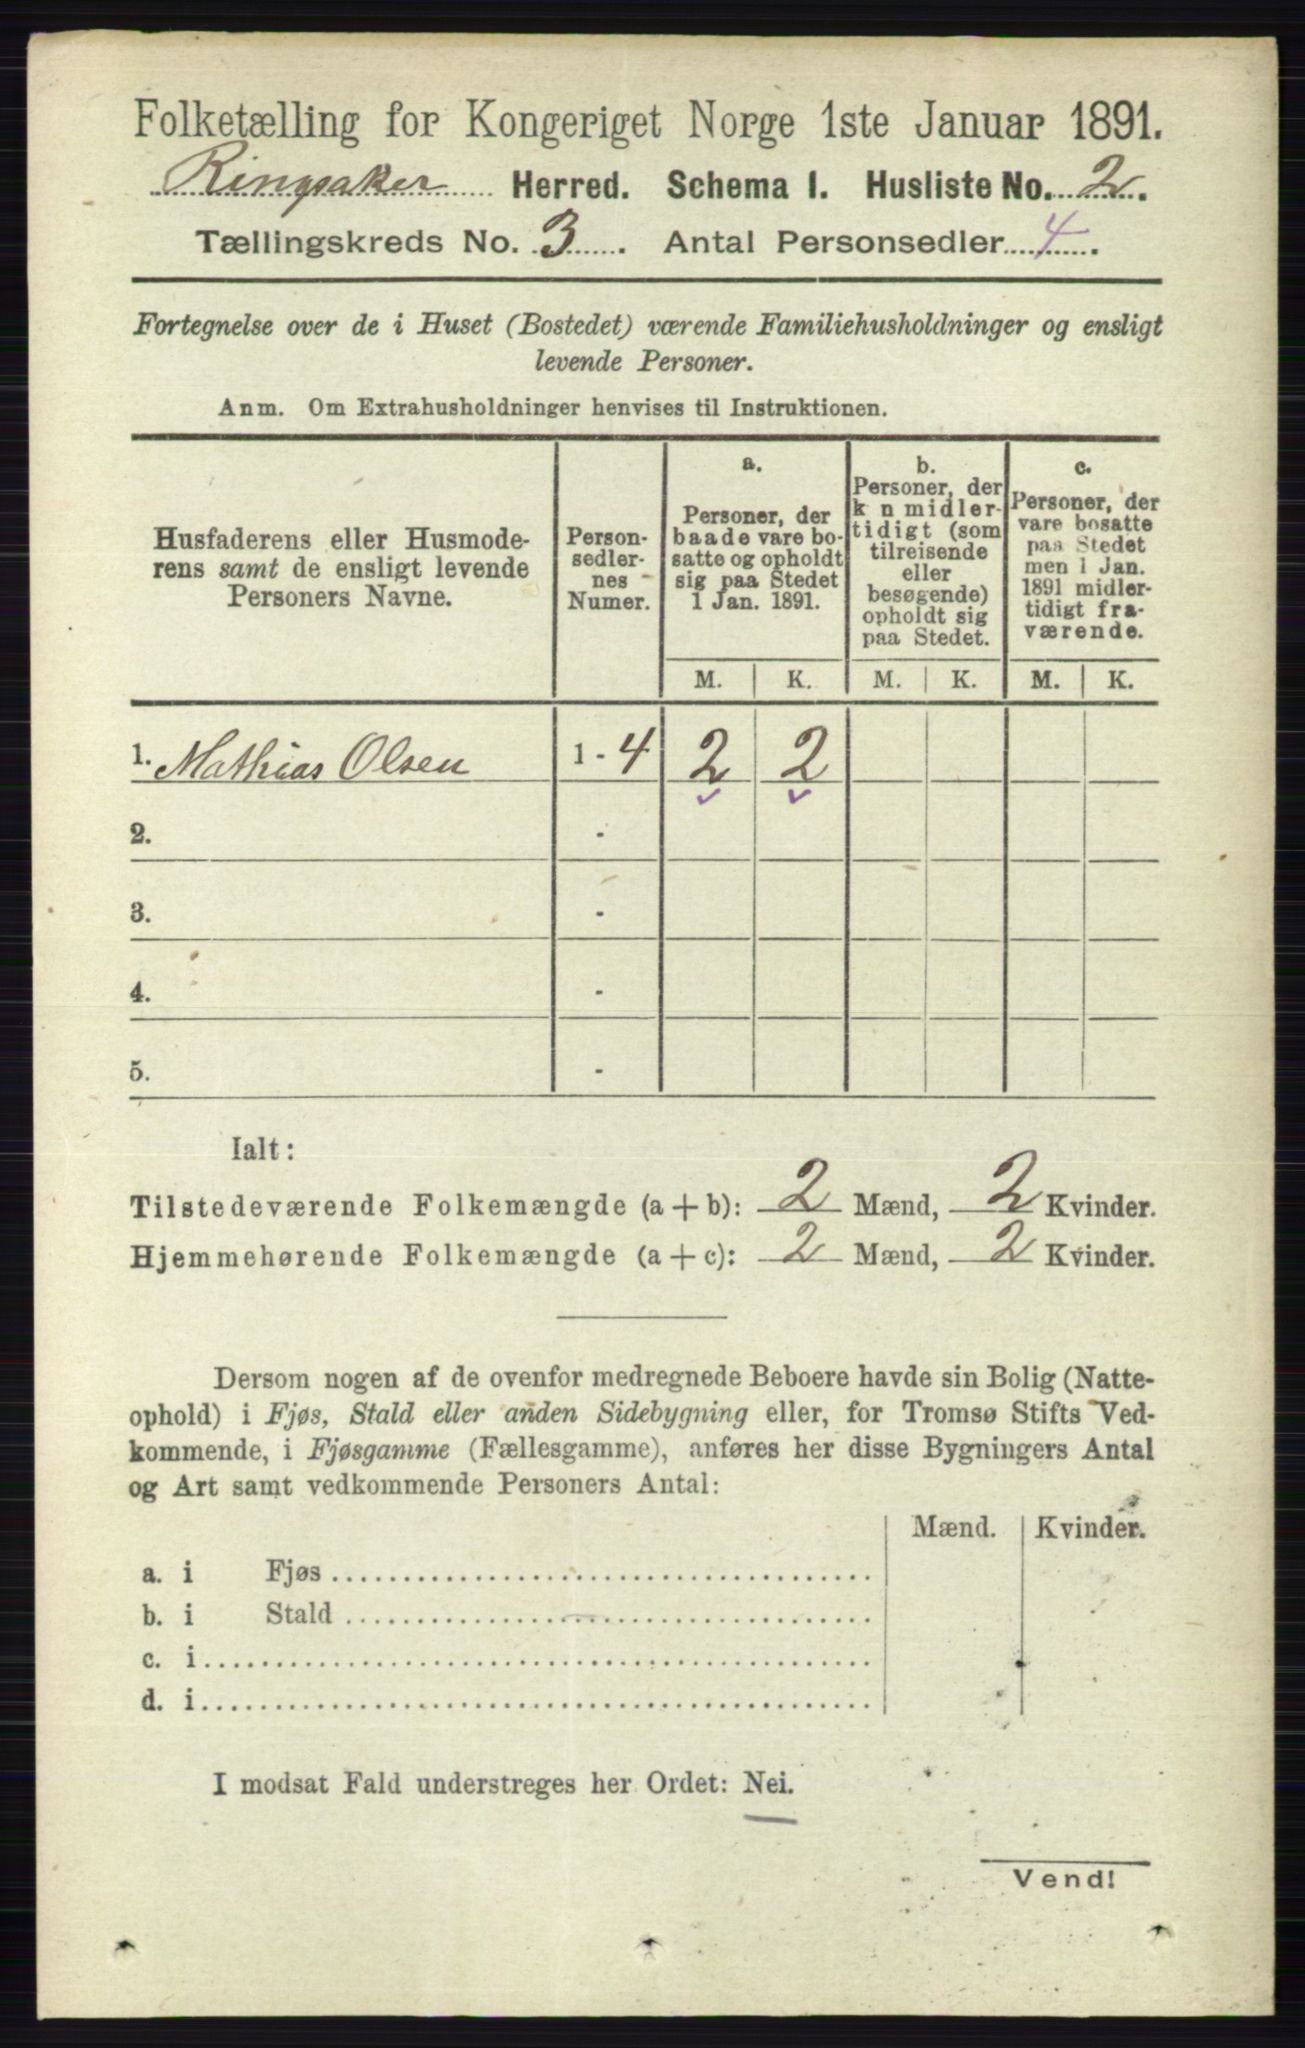 Folketælling for Kongeriget Norge 1ste Januar 1891.
Ringsaker Herred. Schema 1. Husliste No. 2.
Tællingskreds No. 3. Antal Personsedler 4.
Fortegnelse over de i Huset (Bostedet) værende Familiehusholdninger og ensligt
levende Personer.
Anm. Om Extrahusholdninger henvises til Instruktionen.
Husfaderens eller Husmode-
rens samt de ensligt levende
Personers Navne.
Person-
sedler-
nes
Numer.
a.
Personer, der
baade vare bo-
satte og opholdt
sig paa Stedet
1 Jan. 1891.
b.
Personer, der
k n midler-
tidigt (som
tilreisende
eller
besøgende)
opholdt sig
paa Stedet.
c.
Personer, der
vare bosatte
paa Stedet
men 1 Jan.
1891 midler-
tidigt fra-
værende.
M. K. M. K. M. K.
1. Mathias Olsen 1 - 4 2 2
2. -
3. -
4. -
5. -
Ialt:
Tilstedeværende Folkemængde (a + b): 2 Mænd, 2 Kvinder.
Hjemmehørende Folkemængde (a + c): 2 Mænd, 2 Kvinder.
Dersom nogen af de ovenfor medregnede Beboere havde sin Bolig (Natte-
ophold) i Fjøs, Stald eller anden Sidebygning eller, for Tromsø Stifts Ved-
kommende, i Fjøsgamme (Fællesgamme), anføres her disse Bygningers Antal
og Art samt vedkommende Personers Antal:
Mænd. Kvinder.
a. i Fjøs
b. i Stald
c. i
d. i
I modsat Fald understreges her Ordet: Nei.
Vend!